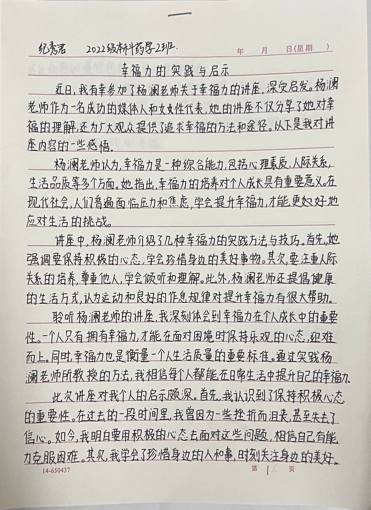 纪秀君 2022级本科药学2班. 年 月 日(星期 )
幸福力的实践与启示
近日,我有幸参加了杨澜老师关于幸福力的讲座,深受启发。杨澜
老师作为一名成功的媒体人和女性代表,她的讲座不仅分享了她对幸
福的理解,还为广大观众提供了追求幸福的方法和途径。以下是我对讲
座内容的一些感悟.
杨澜老师认为,幸福力是一种综合能力,包括心理素质、人际关系、
生活品质等多个方面。她指出,幸福力的培养对个人成长具有重要意义。在
现代社会,人们普遍面临压力和焦虑,学会提升幸福力,才能更好地
应对生活的挑战。
讲座中,杨澜老师介绍了几种幸福力的实践方法与技巧。首先,她
强调要保持积极的心态,学会珍惜身边的美好事物。其次,要注重人际
关系的培养,尊重他人,学会倾听和理解。此外,杨澜老师还提倡健康
的生活方式,认为运动和良好的作息规律对提升幸福力有很大帮助。
聆听杨澜老师的讲座,我深刻体会到幸福力在个人成长中的重要
性。一个人只有拥有幸福力,才能在面对困境时保持乐观的心态,迎难
而上。同时,幸福力也是衡量一个人生活质量的重要标准。通过实践杨
澜老师所教授的方法,我相信每个人都能在日常生活中提升自己的幸福力.
此次讲座对我个人的启示颇深。首先,我认识到了保持积极心态
的重要性。在过去的一段时间里,我曾因为一些挫折而沮丧,甚至失去了
信心。如今,我明白要用积极的心态去面对这些问题,相信自己有能
力克服困难。其次,我学会了珍惜身边的人和事,时刻关注身边的美好。
14-650437 第 页